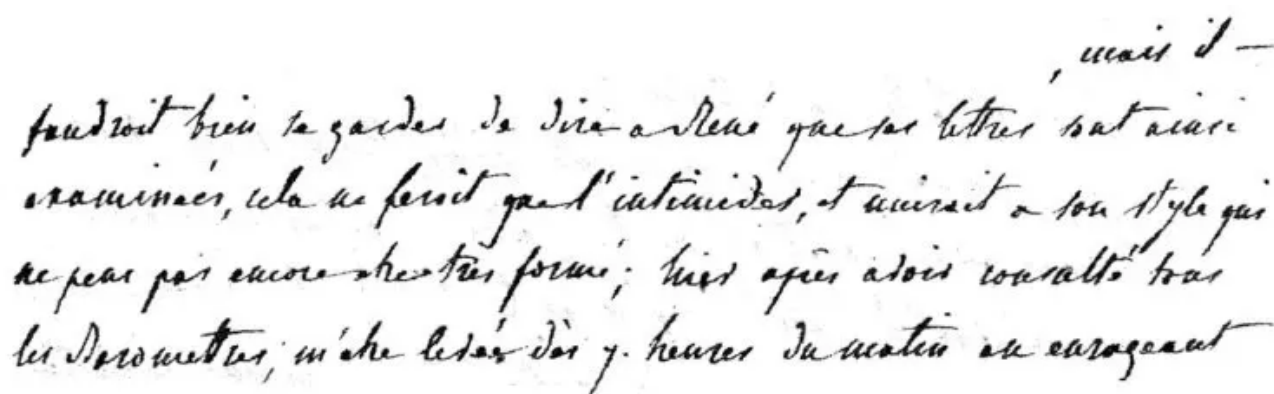 , mais il —
faudroit bien se garder de dire a René que ses lettres sont ainsi
examinées, cela ne feroit que l'intimider, et nuiroit a son style qui
ne peut pas encore etre très formé; hier après avoir consulté tous
les Barometres, m'etre levée dès 7. heures du matin en enrageant